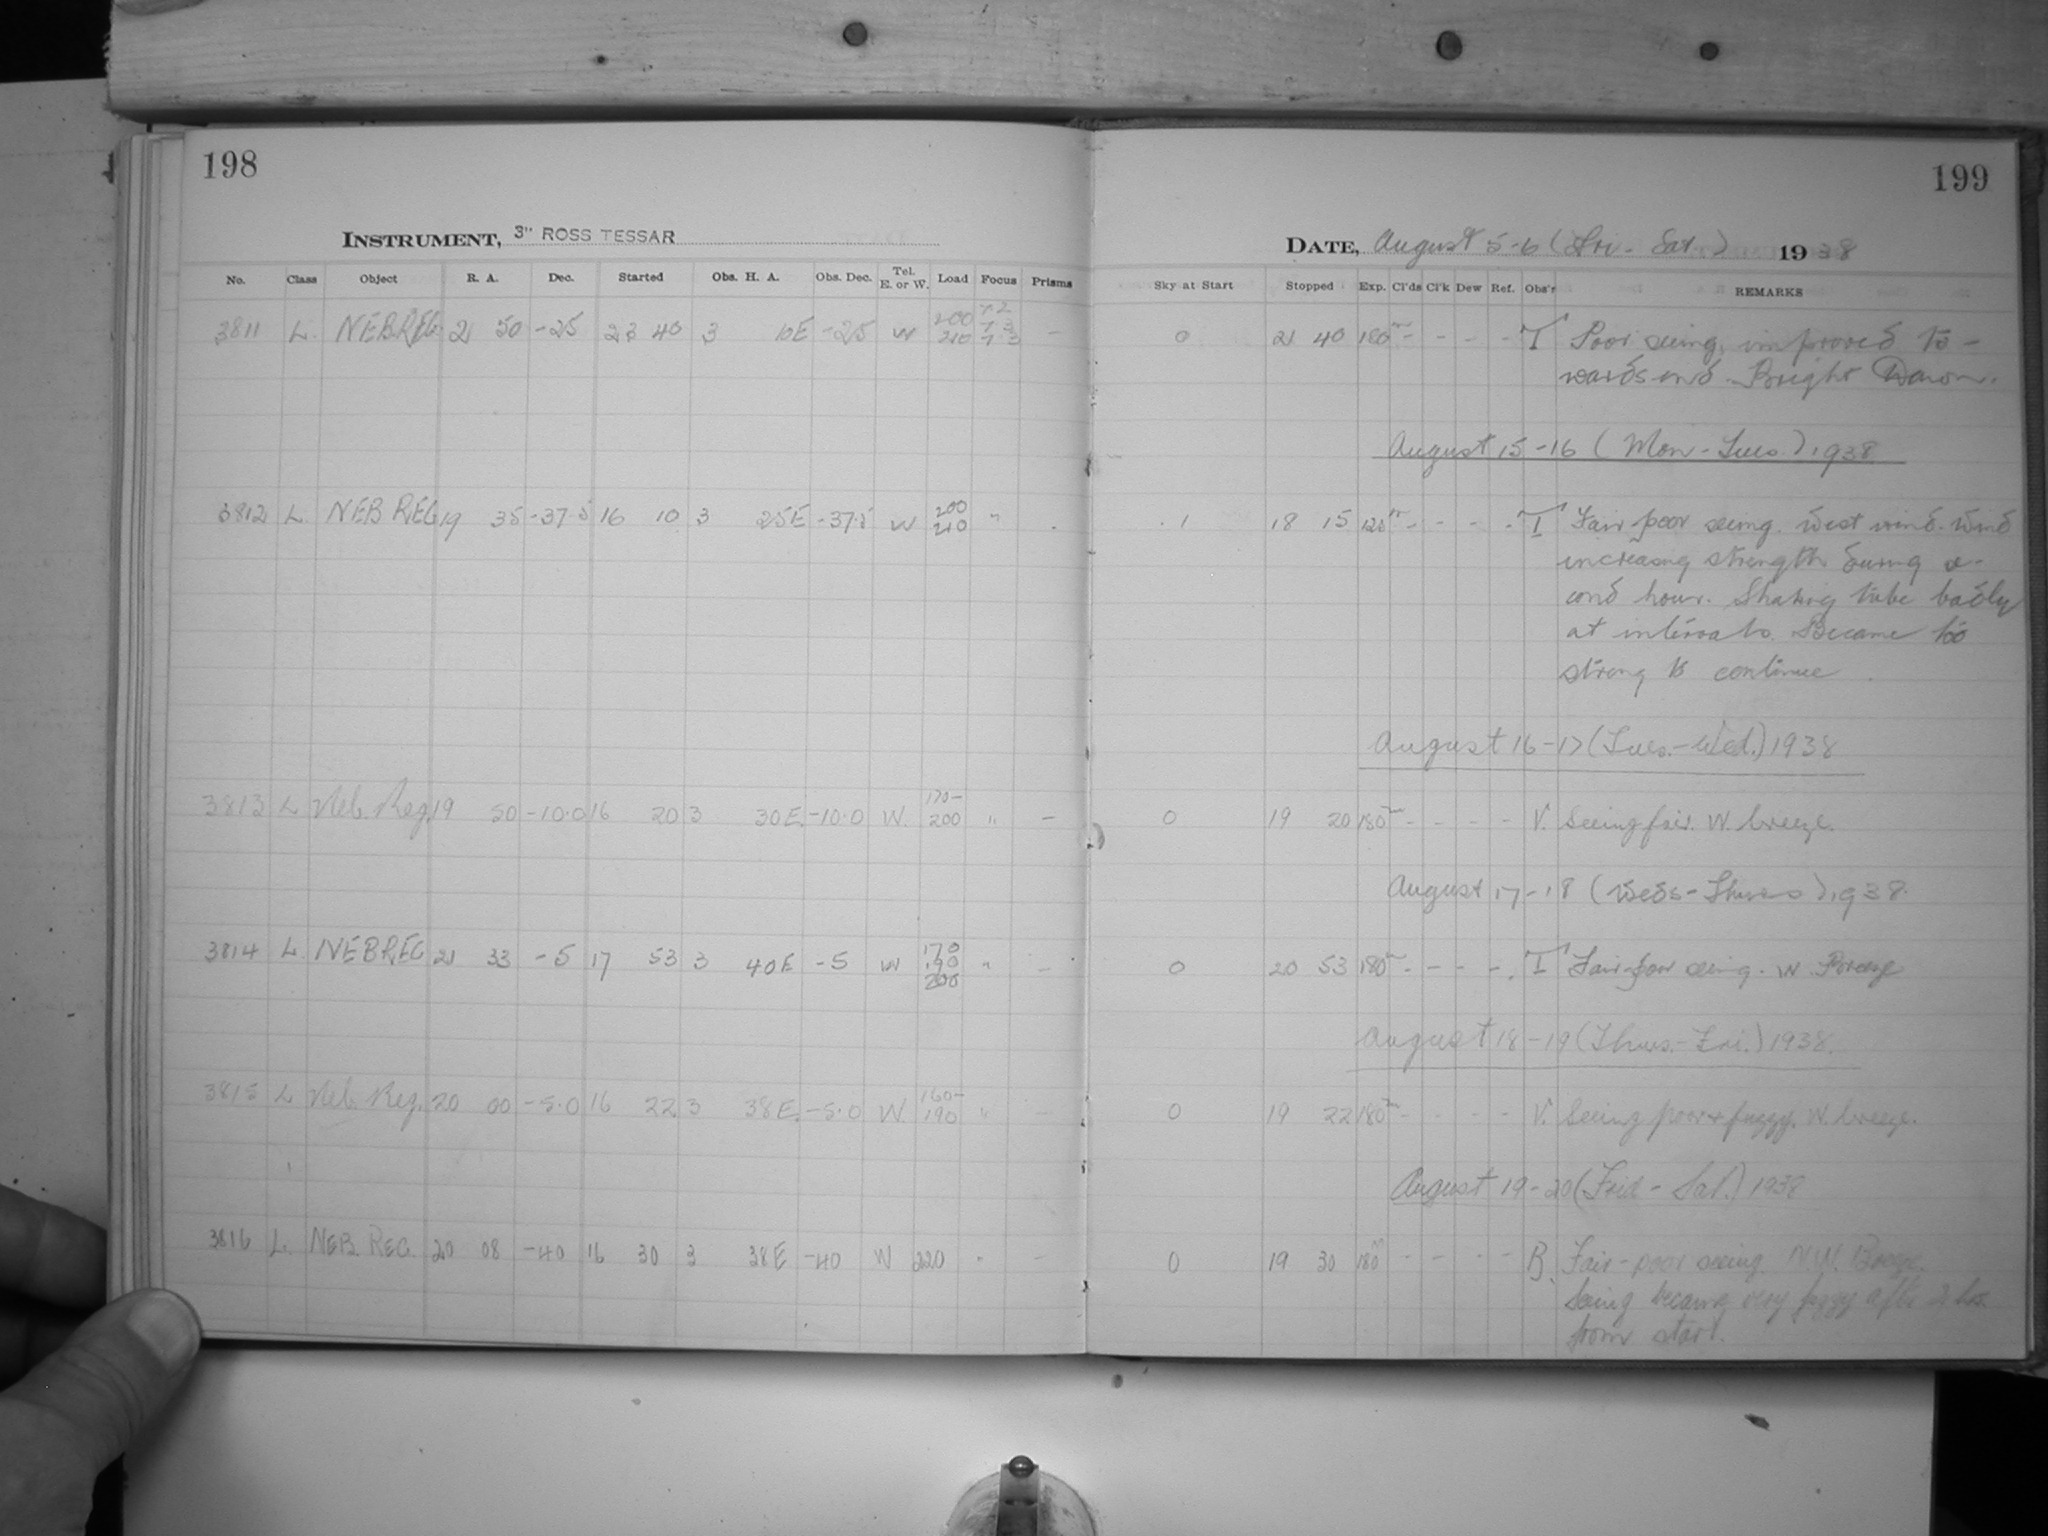 198
INSTRUMENT, 3" ROSS TESSAR
No. Class Object R. A. Dec. Started Obs. H. A. Obs. Dec. Tel. E. or W. Load Focus Prisms
3811 L. NEB REG. 21 50 -25 23 40 3 10E -25 W 200 210 7.2 7.3 7.3 -
3812 L. NEB REG 19 35 -37.5 16 10 3 25E -37.5 W 200 210 "
3813 L Neb. Reg. 19 50 -10.0 16 20 3 30E. -10.0 W. 170- 200 " -
3814 L. NEB REG 21 33 -5 17 53 3 40E -5 W 170 190 200 " -
3815 L Neb. Reg. 20 00 -5.0 16 22 3 38E. -5.0 W. 160- 190 " -
3816 L. NEB. REG. 20 08 -40 16 30 3 38E -40 W 220 " -
199
DATE, August 5-6 (Fri. - Sat.) 1938
Sky at Start Stopped Exp. Cl'ds Cl'k Dew Ref. Obs'r REMARKS
0 21 40 180m - - - - T Poor seeing, improved to-
wards end. Bright Dawn.
August 15-16 (Mon - Tues.) 1938
1 18 15 125m - - - - T Fair-poor seeing. West wind. Wind
increasing strength during se-
cond hour. Shaking tube badly
at intervals. Became too
strong to continue.
August 16-17 (Tues. - Wed.) 1938
0 19 20 180m - - - - V. Seeing fair. W. breeze.
August 17-18 (Weds - Thurs) 1938.
0 20 53 180m - - - - T Fair-poor seeing. W. Breeze
August 18-19 (Thurs. - Fri.) 1938.
0 19 22 180m - - - - V. Seeing poor & fuzzy. W. breeze.
August 19-20 (Frid - Sat.) 1938
0 19 30 180m - - - - B. Fair-poor seeing. N.W. Breeze.
Seeing became very fuzzy after 2 hrs.
from start.